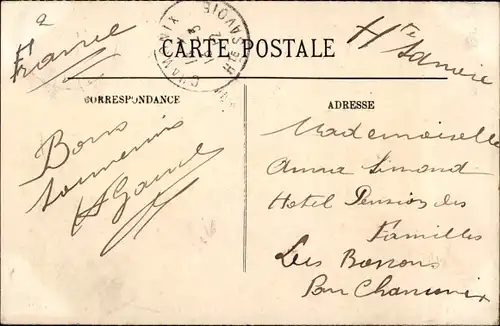 France
Hte Savoie
CARTE POSTALE
CHAMONIX
HTE SAVOIE
CORRESPONDANCE
ADRESSE
Bons
souvenirs
Mademoiselle
Anna Simond
Hotel Pension des
Familles
Les Bossons
Par Chamonix